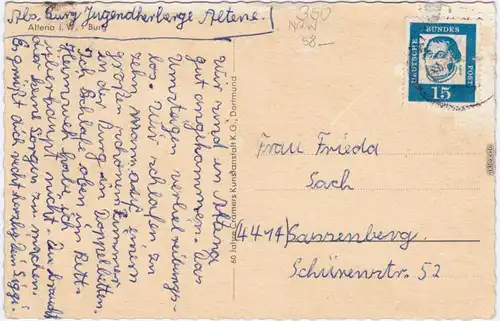 Abs. Burg Jugendherberge Altena.
350
NRW
58.-
Altena i. W., Burg
DEUTSCHE BUNDES POST
15
Wir sind in Altena
gut angekommen. Das
Umsteigen verlief reibungs-
los. Wir schlafen zu
zehn Mann auf einem
großen schönen Zimmer
in der Burg in Doppelbetten.
Ich schlafe oben im Bett.
Heimweh habe ich
überhaupt nicht. Du brauchst
dir keine Sorgen zu machen.
Es grüßt dich recht herzlich dein
60 Jahre Cramers Kunstanstalt K.G., Dortmund
Frau Frieda
Sach
(4414) Sassenberg.
Schürenstr. 52